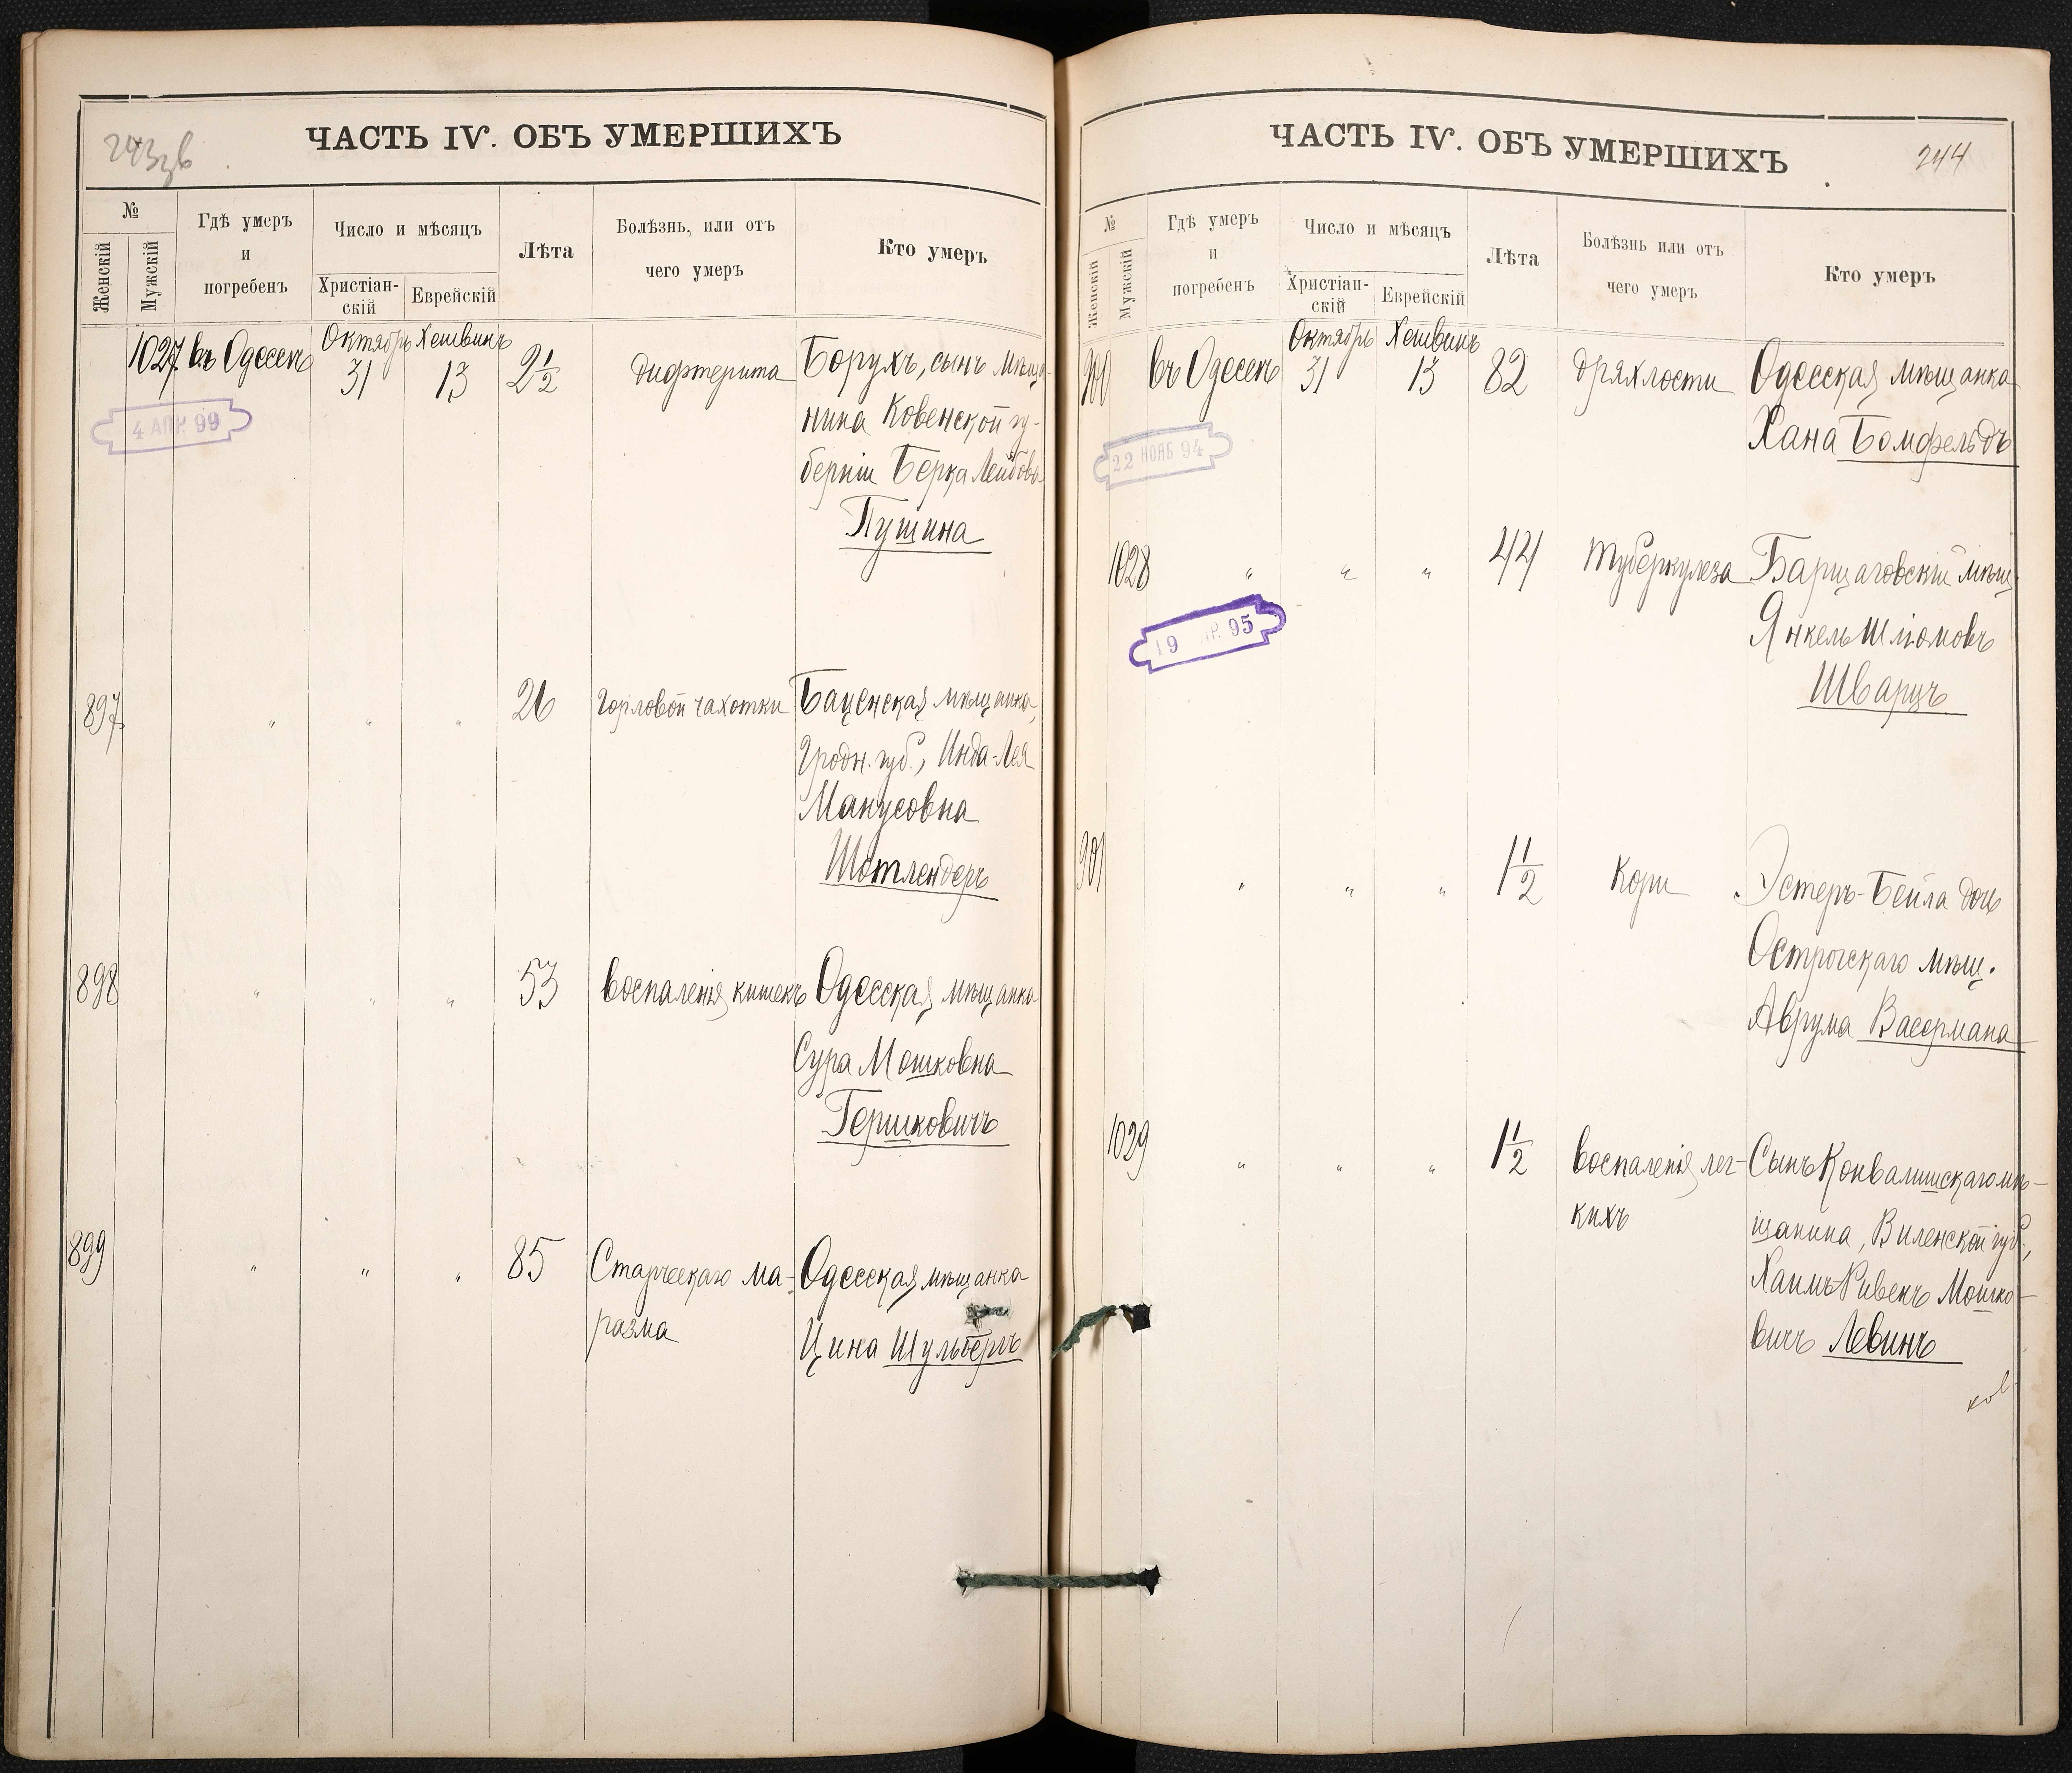 243зв
ЧАСТЬ IV. ОБЪ УМЕРШИХЪ
№
Женскій
Мужскій
Гдѣ умеръ
и
погребенъ
Число и мѣсяцъ
Христіан-
скій
Еврейскій
Лѣта
Болѣзнь, или отъ
чего умеръ
Кто умеръ
1027. въ Одессѣ
Октябрь Хешвинъ
31 13 2½ дифтерита Борухъ, сынъ мѣща-
нина Ковенской гу-
берніи Берка Лейбова
Пушина
4 АПР. 99
897 " " " 26 горловой чахотки Баценская мѣщанка,
Гродн. губ., Инда-Лея
Манусовна
Шотлендеръ
898 " " " 53 воспаленія кишекъ Одесская мѣщанка
Сура Мошковна
Гершковичъ
899 " " " 85 Старческаго ма- Одесская мѣщанка
разма Цина Шульберъ
ЧАСТЬ IV. ОБЪ УМЕРШИХЪ
244
№
Женскій
Мужскій
Гдѣ умеръ
и
погребенъ
Число и мѣсяцъ
Христіан-
скій
Еврейскій
Лѣта
Болѣзнь или отъ
чего умеръ
Кто умеръ
900 въ Одессѣ
Октябрь Хешвинъ
31 13 82 дряхлости Одесская мѣщанка
Хана Бомфельдъ
22 НОЯБ 94
1028 " " " 44 туберкулеза Барщаговскій мѣщ.
Янкель Шліомовъ
Шварцъ
19 95
901 " " " 1½ кори Эстеръ-Бейла дочь
Острогскаго мѣщ.
Аврума Васермана
1029 " " " 1½ воспаленія лег- Сынъ Конвалишскаго мѣ-
кихъ щанина, Виленской губ.,
Хаимъ Рувенъ Мошко-
вичъ Левинъ